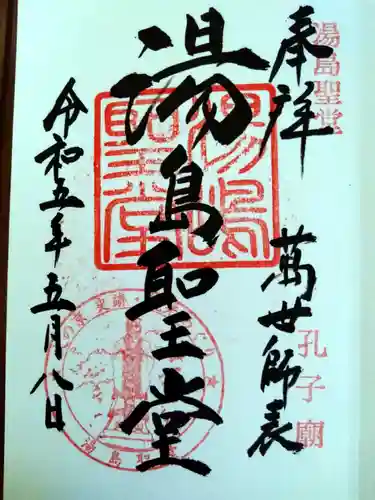 奉拝
湯島聖堂
萬世師表
孔子廟
湯島聖堂
湯島聖堂
令和五年五月八日
湯島聖